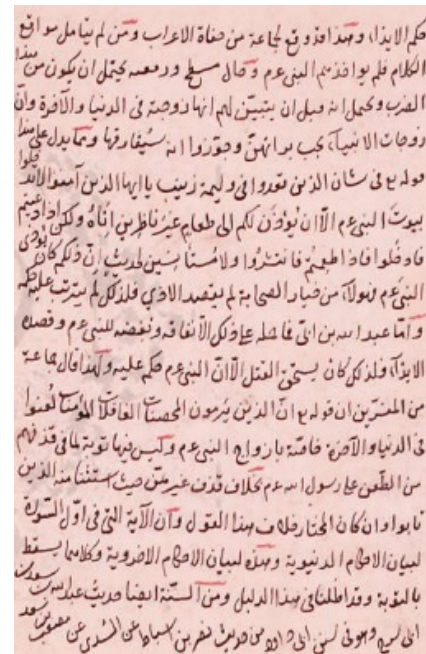 حكم الايذاء وهذا قد وقع لجماعة من جفاة الاعراب ومن لم يتأمل مواقع
الكلام فلم يواخذهم النبى عم وقال مسطح ورفعه يحتمل ان يكون من هذا
الضرب ويحتمل انه قبل ان يتبيّن لهم انها زوجته فى الدنيا والآخرة وانّ
زوجات الانبياء يجب براتهنّ وجوّزوا انه سيفارقها ومما يدل على هذا
قوله تع فى شان الذين قعدوا فى وليمة زينب يا ايها الذين آمنوا لا تدخلوا
بيوت النبى عم الّا ان يُؤذن لكم الى طعام غير ناظرين اناه ولكن اذا دعيتم
فادخلوا فاذا طعمتم فانتشروا ولا مستأنسين لحديث انّ ذلكم كان يؤذى
النبى عم وهولآء من خيار الصحابة لم يقصد الاذى فلذلك لم يترتب عليه حكمه
وأمّا عبد الله بن ابىّ فالحامل له على ذلك الّا نفاقه وبغضه للنبى عم وقصده
الايذآء فلذلك كان يستحق القتل الّا انّ النبى عم حكم عليه ولهذا قال جماعة
من المفسّرين ان قوله تع انّ الذين يرمون المحصنات الغافلات المؤمنات لُعنوا
فى الدنيا والآخرة خاصّة بازواج النبى عم وليس فيها توبة لما فى قذفهم
من الطعن على رسول الله عم بخلاف قذف غيرهنّ حيث استثنا منه الذين
تابوا وان كان المختار خلاف هذا القول وانّ الآية التى فى اوّل السّورة
لبيان الاحكام الدنيوية وهذه لبيان الاحكام الاخروية وكلاهما يسقط
بالتوبة وقد اطلنا فى هذا الدليل ومن السنّة ايضا حديث عبد الله بن سعد بن
ابى سرح وهو فى سنن ابى داود من حديث نصر بن اسباط عن السّدى عن مصعب بن سعد